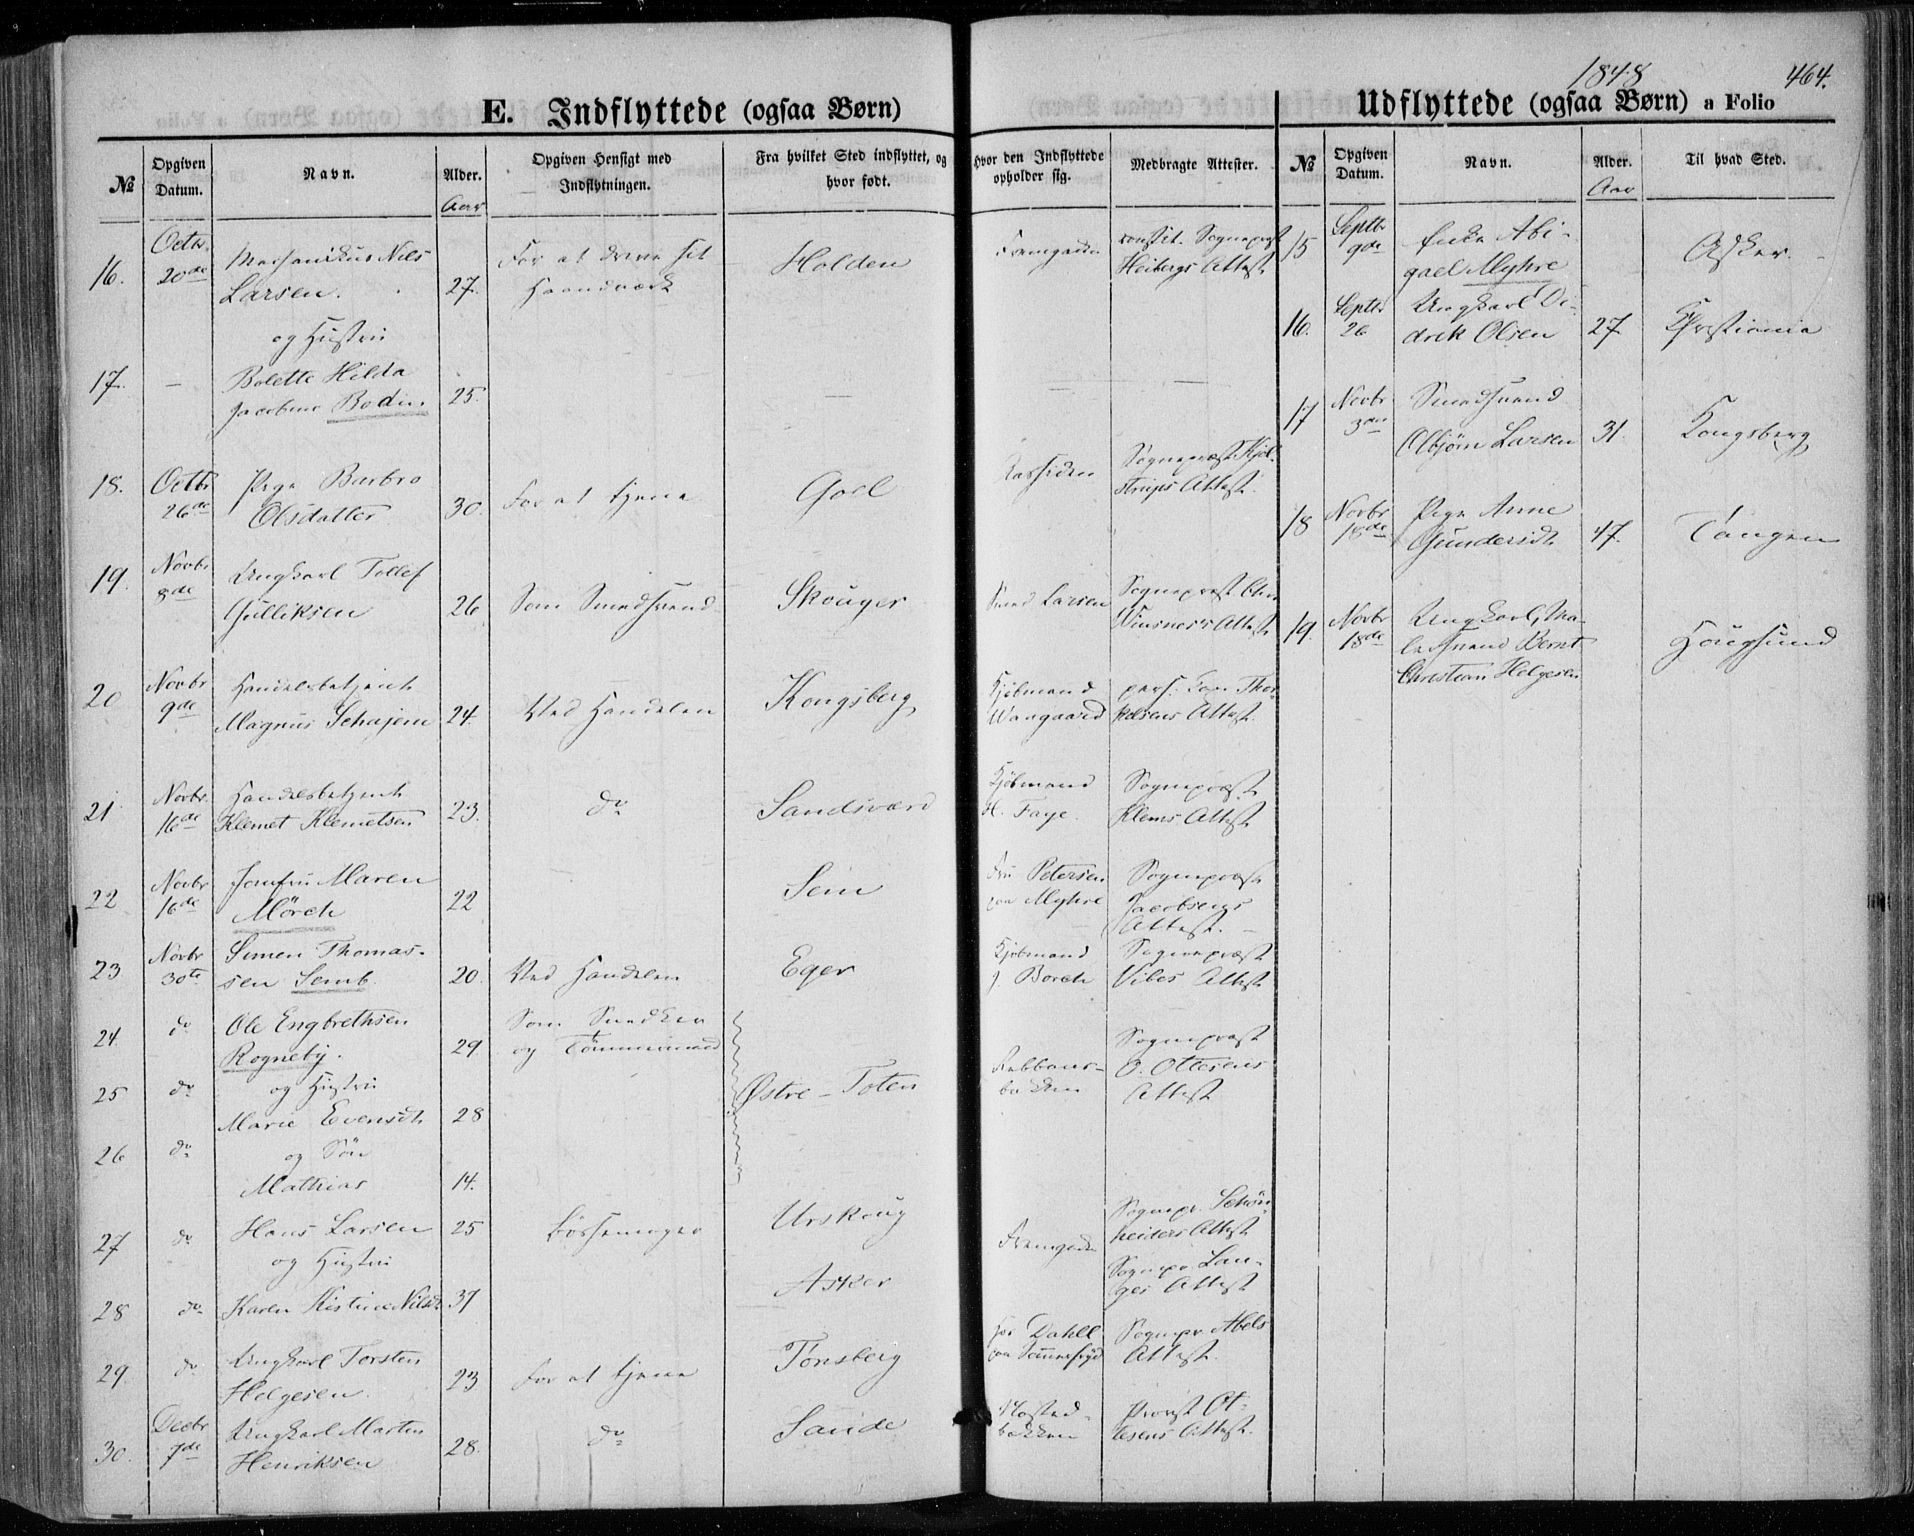 1848
464.
E. Indflyttede (ogsaa Børn)
Udflyttede (ogsaa Børn) a Folio
No
Opgiven Datum.
Navn.
Alder.
Aar
Opgiven Hensigt med Indflytningen.
Fra hvilket Sted indflyttet, og hvor født.
Hvor den Indflyttede opholder sig.
Medbragte Attester.
No
Opgiven Datum.
Navn.
Alder.
Aar
Til hvad Sted.
16. Octbr. 20de Mechanikus Nils
Larsen. 27. For at drive sit Haandværk Holden Fremgaden const. Sognepræst
Heibergs Attest
og Hustru
17. — Bolette Hilda
Jacobine Bodin 25.
18. Octbr 26de Pige Barbro
Olsdatter 30. For at tjene Goel Sognepræst Kjel-
strups Attest.
19. Novbr 8de Ungkarl Tollef
Gulliksen 26 Som Smedsvend Skouger Smed Larsen Sognepræst
Winsnes's Attest
20 Novbr 9de Handelsbetjent
Magnus 24. Ved Handelen Kongsberg Kjøbmand
Wangaard pers. Cap. Thor-
kelsens Attest.
21 Novbr. 16de Handelsbetjent
Klemet Klemetsen 23. do Sandsværd Kjøbmand
H. Faye. Sognepræst
Klems Attest
22 Novbr 16de Jomfru Maren
Mörch 22 Sem Fru Petersen
paa Myhre Sognepræst
Jacobsens
Attest. —
23. Novbr 30te Simen Thomas-
sen Semb. 20. Ved Handelen Eger Kjøbmand
J. Borch Sognepræst
Vibes Attest
24. do Ole Engbrethsen
Rogneby. 29 Som Snedker
og Tömmermand Østre - Toten
Sognepræst
O. Ottesens
Attest
25 do og Hustru
Marie Evensdt. 28
26 do og Sön
Mathias 14.
27 do Hans Larsen 25 Børsemager Urskoug Fremgaden Sognepr. Schön-
heiders Attest
og Hustru
28 do Karen Kistine Nilsdt. 37 Asker Sognepr Lan-
ges Attest
29. do Ungkarl Torsten
Helgesen. 23 For at tjene Tönsberg hos Dahll
paa Sommerfryd Sognepr. Abels
Attest.
30. Decbr 7de Ungkarl Martin
Henriksen 28. do Sande Provst Ot-
tesens Attest.
15 Septbr 9de Enke Abi-
gael Myhre Asker.
16. Septbr 26 Ungkarl Di-
drik Olsen 27. Christiania
17 Novbr 3die Smedsvend
Olbjørn Larsen 31. Kongsberg
18 Novbr 18de Pige Anne
Gundersdt. 47. Tangen
19. Novbr 18de Ungkarl, Ma-
lersvend Bernt
Christian Helgesen Hougsund